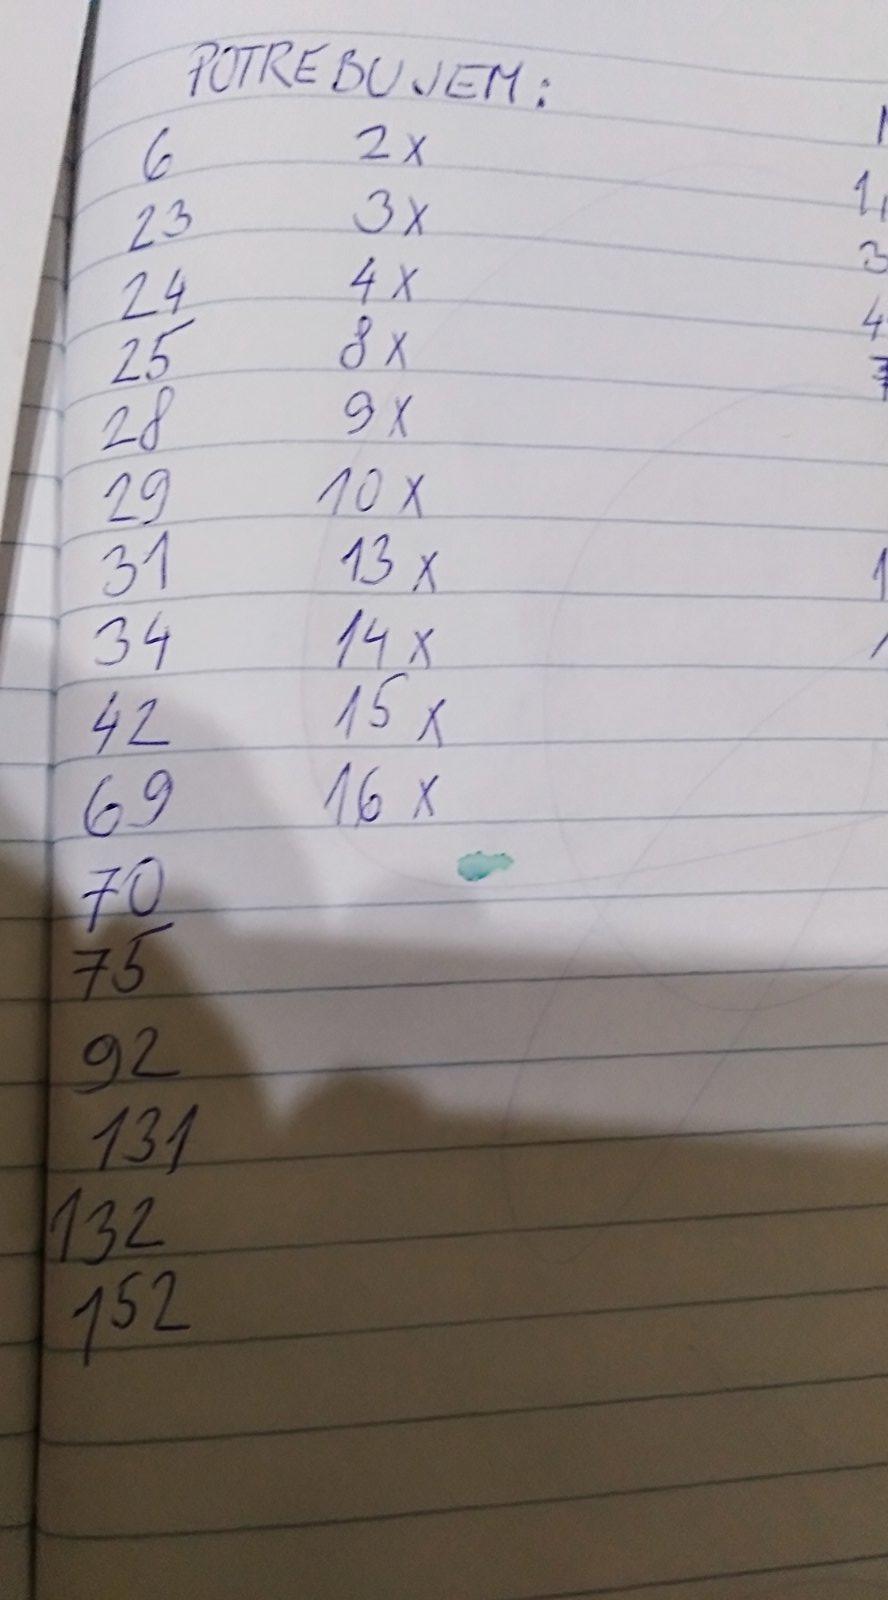 POTREBUJEM:
6 2x
23 3x
24 4x
25 8x
28 9x
29 10x
31 13x
34 14x
42 15x
69 16x
70
75
92
131
132
152